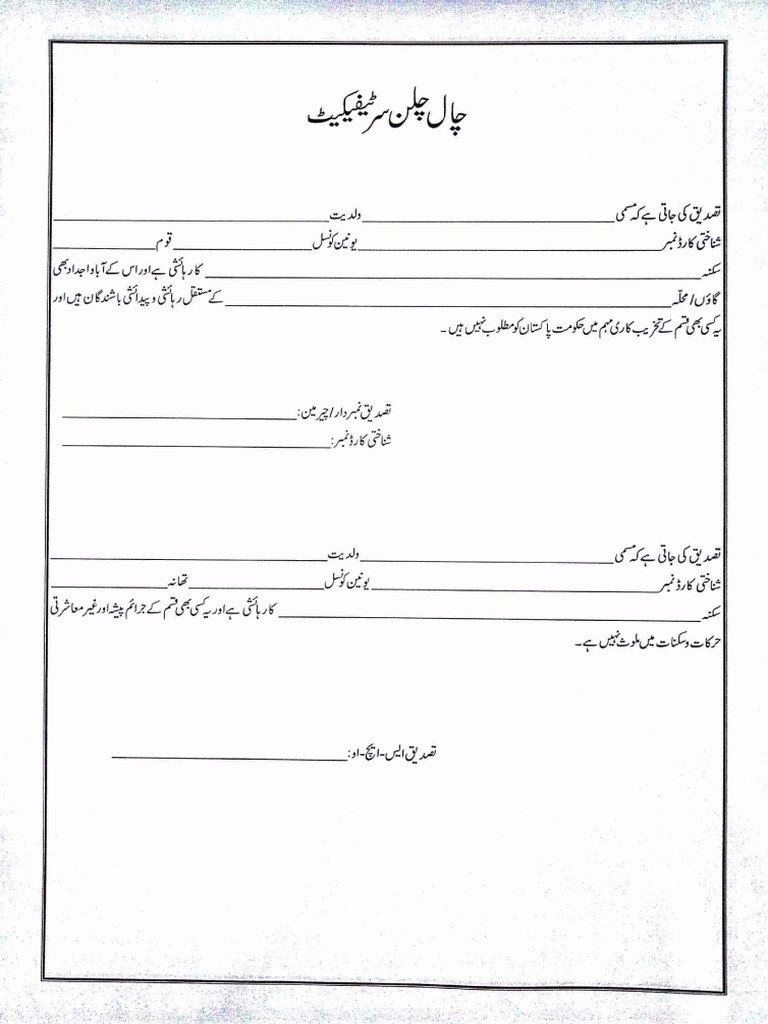 چال چلن سرٹیفیکیٹ
تصدیق کی جاتی ہے کہ مسمی ______ ولدیت ______
شناختی کارڈ نمبر ______ یونین کونسل ______ قوم ______
سکنہ ______ کا رہائشی ہے اور اس کے آباواجداد بھی
گاؤں/محلّہ ______ کے مستقل رہائشی و پیدائشی باشندگان ہیں اور
یہ کسی بھی قسم کے تخریب کاری مہم میں حکومت پاکستان کو مطلوب نہیں ہیں ۔
تصدیق نمبردار/چیرمین: ______
شناختی کارڈ نمبر: ______
تصدیق کی جاتی ہے کہ مسمی ______ ولدیت ______
شناختی کارڈ نمبر ______ یونین کونسل ______ تھانہ ______
سکنہ ______ کا رہائشی ہے اور یہ کسی بھی قسم کے جرائم پیشہ اور غیر معاشرتی
حرکات و سکنات میں ملوث نہیں ہے ۔
تصدیق ایس-ایچ-او: ______